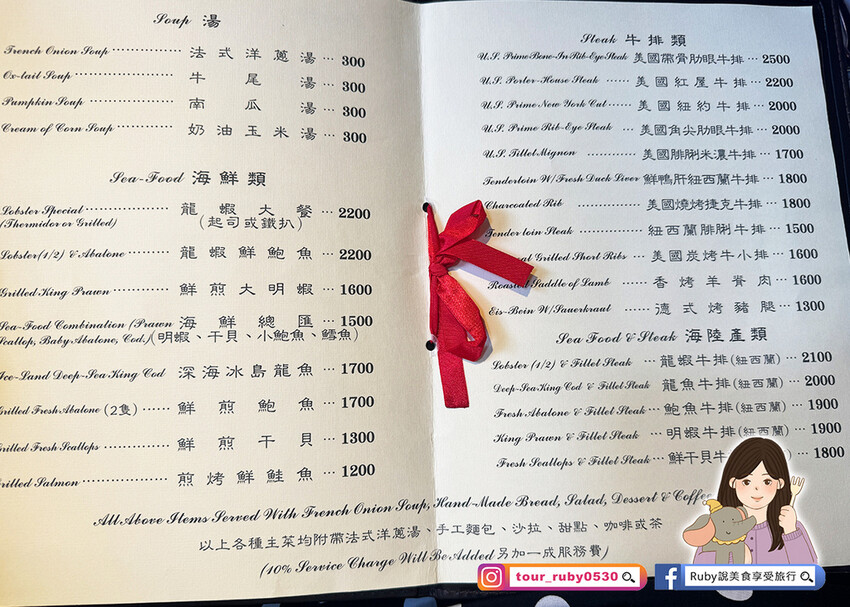 Soup 湯
French Onion Soup ·············· 法式洋蔥湯 ··· 300
Ox-tail Soup ·············· 牛尾湯 ··· 300
Pumpkin Soup ·············· 南瓜湯 ··· 300
Cream of Corn Soup ·········· 奶油玉米湯 ··· 300
Sea-Food 海鮮類
Lobster Special ·············· 龍蝦大餐 ··· 2200
(Thermidor or Grilled) (起司或鐵扒)
Lobster (1/2) & Abalone ······ 龍蝦鮮鮑魚 ··· 2200
Grilled King Prawn ·········· 鮮煎大明蝦 ··· 1600
Sea-Food Combination (Prawn 海鮮總匯 ··· 1500
Scallop, Baby Abalone, Cod.) (明蝦、干貝、小鮑魚、鱈魚)
Ice-Land Deep-Sea King Cod 深海冰島龍魚 ··· 1700
Grilled Fresh Abalone (2隻) ······ 鮮煎鮑魚 ··· 1700
Grilled Fresh Scallops ······ 鮮煎干貝 ··· 1300
Grilled Salmon ·············· 煎烤鮮鮭魚 ··· 1200
Steak 牛排類
U.S. Prime Bone-In Rib-Eye Steak 美國帶骨肋眼牛排 ··· 2500
U.S. Porter-House Steak ······ 美國紅屋牛排 ··· 2200
U.S. Prime New York Cut ······ 美國紐約牛排 ··· 2000
U.S. Prime Rib-Eye Steak ··· 美國角尖肋眼牛排 ··· 2000
U.S. Fillet Mignon ············ 美國腓脷米濃牛排 ··· 1700
Tenderloin W/Fresh Duck Liver 鮮鴨肝紐西蘭牛排 ··· 1800
Charcoaled Rib ············ 美國燒烤捷克牛排 ··· 1800
Tender loin Steak ············ 紐西蘭腓脷牛排 ··· 1500
Grilled Short Ribs ··· 美國炭烤牛小排 ··· 1600
Roasted Saddle of Lamb ······ 香烤羊脊肉 ··· 1600
Eis-Bein W/Sauerkraut ······ 德式烤豬腿 ··· 1300
Sea Food & Steak 海陸產類
Lobster (1/2) & Fillet Steak ··· 龍蝦牛排(紐西蘭) ··· 2100
Deep-Sea King Cod & Fillet Steak ··· 龍魚牛排(紐西蘭) ··· 2000
Fresh Abalone & Fillet Steak ··· 鮑魚牛排(紐西蘭) ··· 1900
King Prawn & Fillet Steak ··· 明蝦牛排(紐西蘭) ··· 1900
Fresh Scallops & Fillet Steak ··· 鮮干貝牛 ··· 1800
All Above Items Served With French Onion Soup, Hand-Made Bread, Salad, Dessert & Coffee
以上各種主菜均附帶法式洋蔥湯、手工麵包、沙拉、甜點、咖啡或茶
(10% Service Charge Will Be Added 另加一成服務費)
tour_ruby0530
Ruby說美食享受旅行